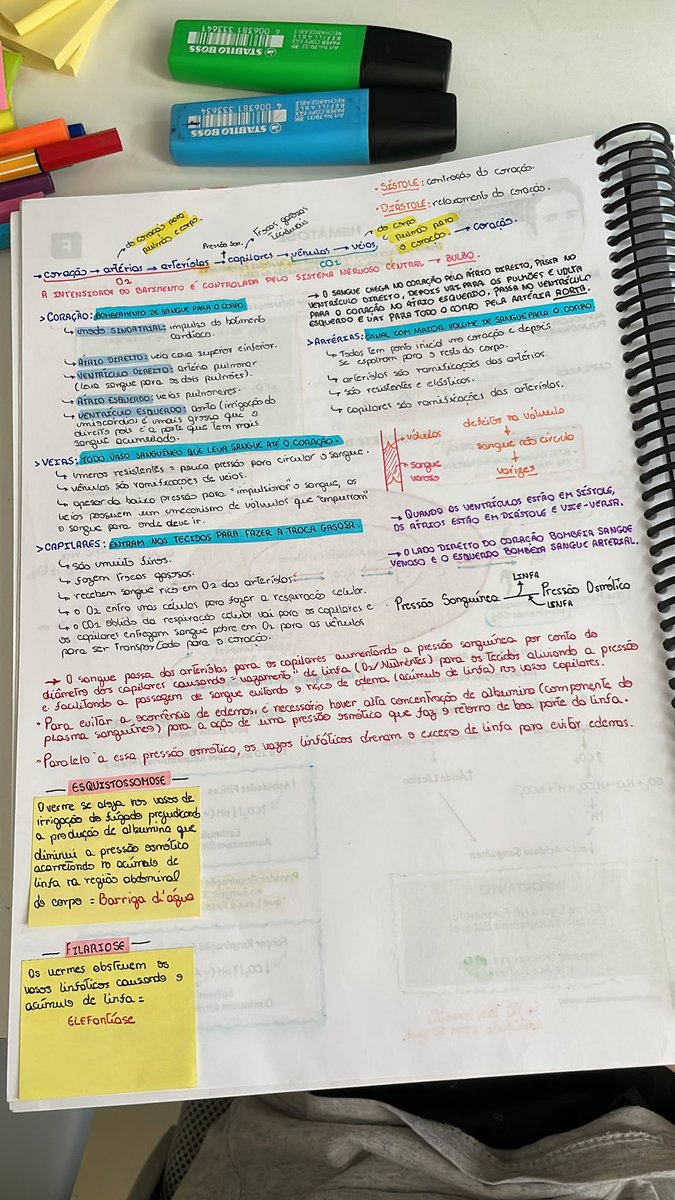 STABILO BOSS
STABILO BOSS
• SÍSTOLE: contração do coração.
• DIÁSTOLE: relaxamento do coração.
do coração para
outros corpo.
Pressão San.
Trocas gasosas
teciduais
do corpo
pulmão para
o coração.
→ coração → artérias → arteríolas → capilares → vênulas → veias → coração.
O2
CO2
A INTENSIDADE DO BATIMENTO É CONTROLADA PELO SISTEMA NERVOSO CENTRAL → BULBO.
> CORAÇÃO: BOMBEAMENTO DE SANGUE PARA O CORPO
↳ nodo SINOATRIAL: impulso do batimento
cardíaco.
↳ ÁTRIO DIREITO: veia cava superior e inferior.
↳ VENTRÍCULO DIREITO: artéria pulmonar
(leva sangue para os dois pulmões).
↳ ÁTRIO ESQUERDO: veias pulmonares.
↳ VENTRÍCULO ESQUERDO: aorta (irrigação do
miocárdio) é mais grossa que o
direito pois é a parte que tem mais
sangue acumulado.
→ O SANGUE CHEGA NO CORAÇÃO PELO ÁTRIO DIREITO, PASSA NO
VENTRÍCULO DIREITO, DEPOIS VAI PARA OS PULMÕES E VOLTA
PARA O CORAÇÃO NO ÁTRIO ESQUERDO, PASSA NO VENTRÍCULO
ESQUERDO E VAIS PARA TODO O CORPO PELA ARTÉRIA AORTA.
> ARTÉRIAS: CANAL COM MAIOR VOLUME DE SANGUE PARA O CORPO.
↳ Todas tem ponto inicial no coração e depois
se espalham para o resto do corpo.
↳ arteríolas são ramificações das artérias.
↳ são resistentes e elásticas.
↳ capilares são ramificações das arteríolas.
> VEIAS: TODO VASO SANGUÍNEO QUE LEVA SANGUE ATÉ O CORAÇÃO.
↳ menos resistentes = pouca pressão para circular o sangue.
↳ vênulas são ramificações de veias.
↳ apesar da baixa pressão para "impulsionar" o sangue, as
veias possuem um mecanismo de válvulas que "empurram"
o sangue para onde deve ir.
→ válvulas
→ sangue
venoso
defeitos na válvula
↓
sangue não circula
↓
varizes
> CAPILARES: ENTRAM NOS TECIDOS PARA FAZER A TROCA GASOSA.
↳ são muito finos.
↳ fazem trocas gasosas.
↳ recebem sangue rico em O2 das arteríolas
↳ o O2 entra nas células para fazer a respiração celular.
↳ o CO2 obtido da respiração celular vai para os capilares e
os capilares entregam sangue pobre em O2 para as vênulas
para ser transportado para o coração.
→ QUANDO OS VENTRÍCULOS ESTÃO EM SÍSTOLE,
OS ÁTRIOS ESTÃO EM DIÁSTOLE E VICE-VERSA.
→ O LADO DIREITO DO CORAÇÃO BOMBEIA SANGUE
VENOSO E O ESQUERDO BOMBEIA SANGUE ARTERIAL.
LINFA
• Pressão Sanguínea Pressão Osmótica
LINFA
→ O sangue passa das arteríolas para os capilares aumentando a pressão sanguínea por conta do
diâmetro dos capilares causando "vazamento" de linfa (O2/Nutrientes) para os tecidos aliviando a pressão
e facilitando a passagem de sangue evitando o risco de edema (acúmulo de linfa) nos vasos capilares.
• Para evitar a ocorrência de edemas, é necessário haver alta concentração de albumina (componente do
plasma sanguíneo) para a ação de uma pressão osmótica que faz o retorno de boa parte da linfa.
• Paralelo a essa pressão osmótica, os vasos linfáticos drenam o excesso de linfa para evitar edemas.
ESQUISTOSSOMOSE
O verme se aloja nos vasos de
irrigação do fígado prejudicando
a produção de albumina que
diminui a pressão osmótica
acarretando no acúmulo de
linfa na região abdominal
do corpo = Barriga d'água
FILARIOSE
Os vermes obstruem os
vasos linfáticos causando o
acúmulo de linfa =
ELEFantíase